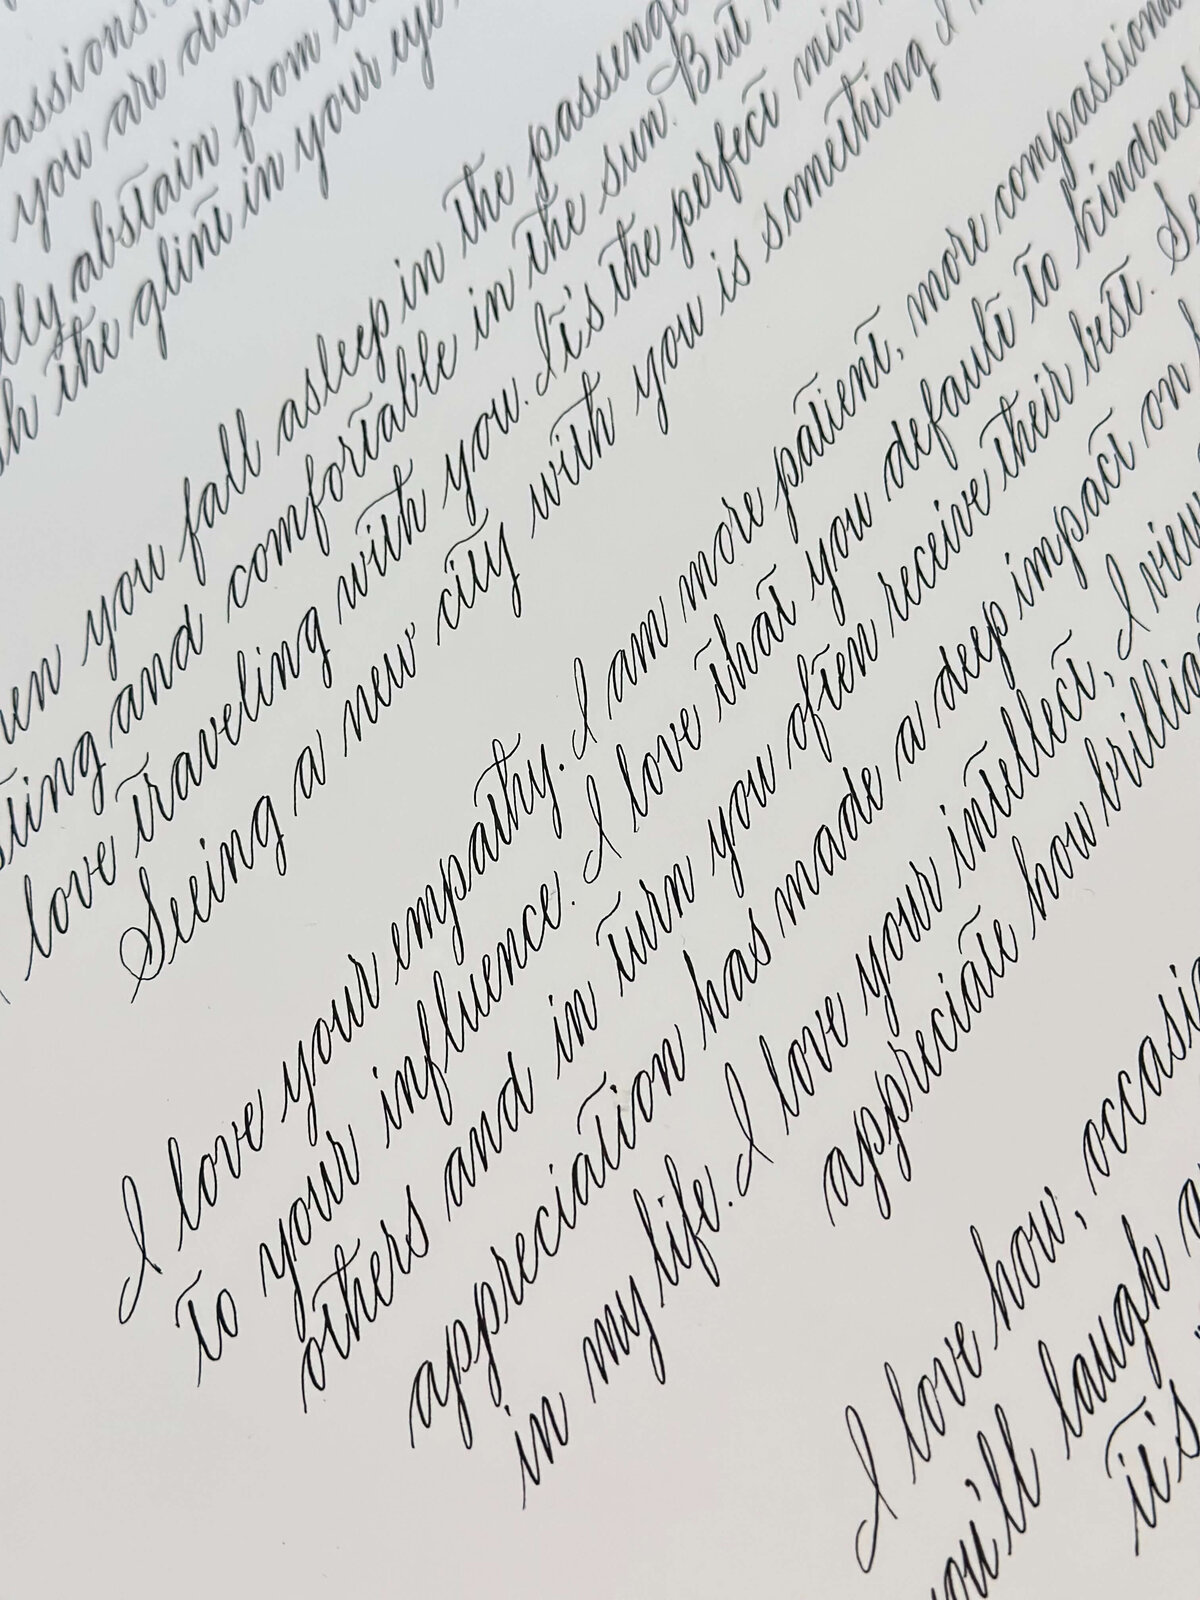 assions.
you are dis
lly abstain from
h the glint in your eye
en you fall asleep in the passeng
ting and comfortable in the sun. But
love traveling with you. It's the perfect mix
Seeing a new city with you is something I
I love your empathy. I am more patient, more compassiona
to your influence. I love that you default to kindnes
others and in turn you often receive their best. Se
appreciation has made a deep impact on
in my life. I love your intellect, I view
appreciate how brillia
I love how, occasi
you'll laugh a
it's